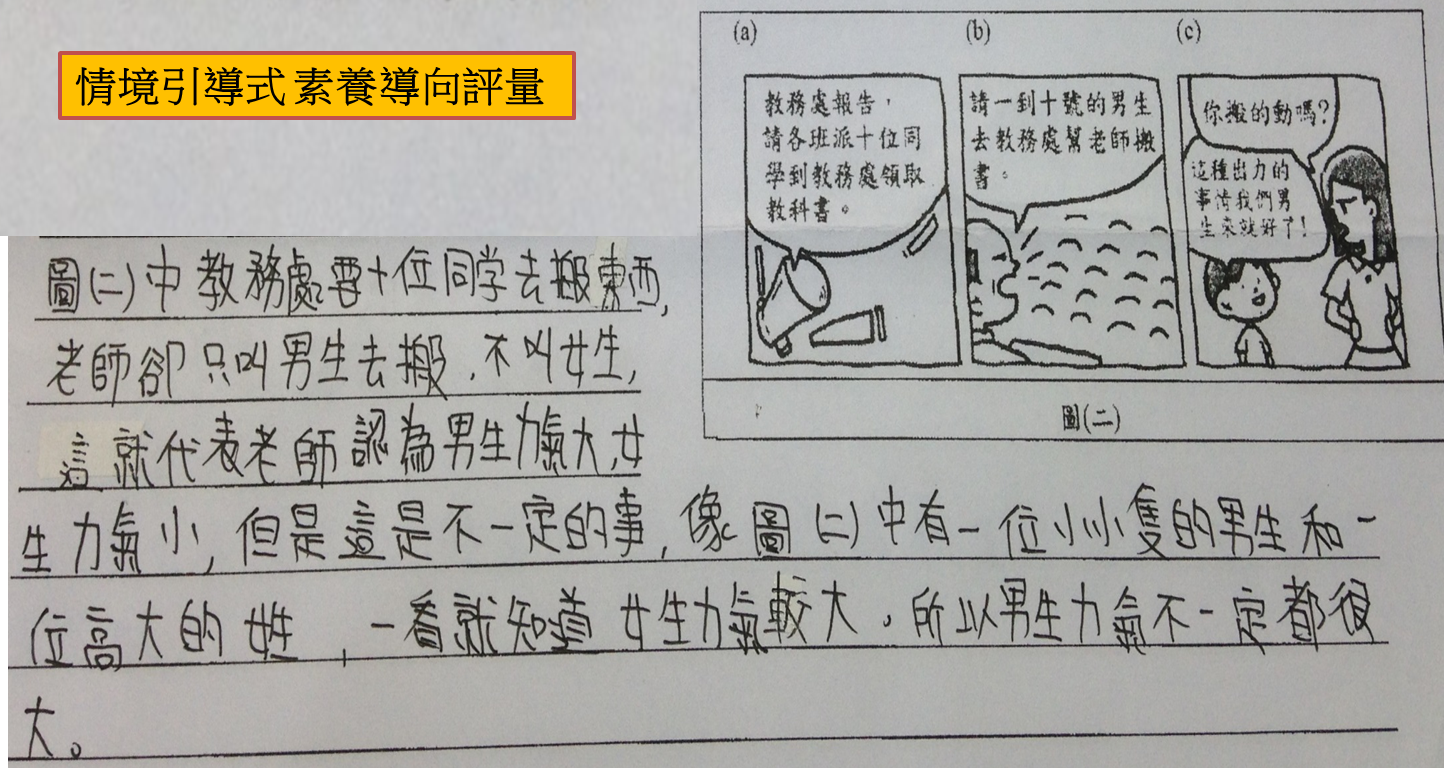 情境引導式 素養導向評量
(a)
教務處報告，
請各班派十位同
學到教務處領取
教科書。
(b)
請一到十號的男生
去教務處幫老師搬
書。
(c)
你搬的動嗎?
這種出力的
事情我們男
生來就好了!
圖(二)
圖(二)中教務處要十位同学去搬東西,
老師卻只叫男生去搬,不叫女生,
這就代表老師認為男生力氣大,女
生力氣小,但是這是不一定的事,像圖(二)中有一位小小隻的男生和一
位高大的姓,一看就知道女生力氣較大。所以男生力氣不一定都很
大。